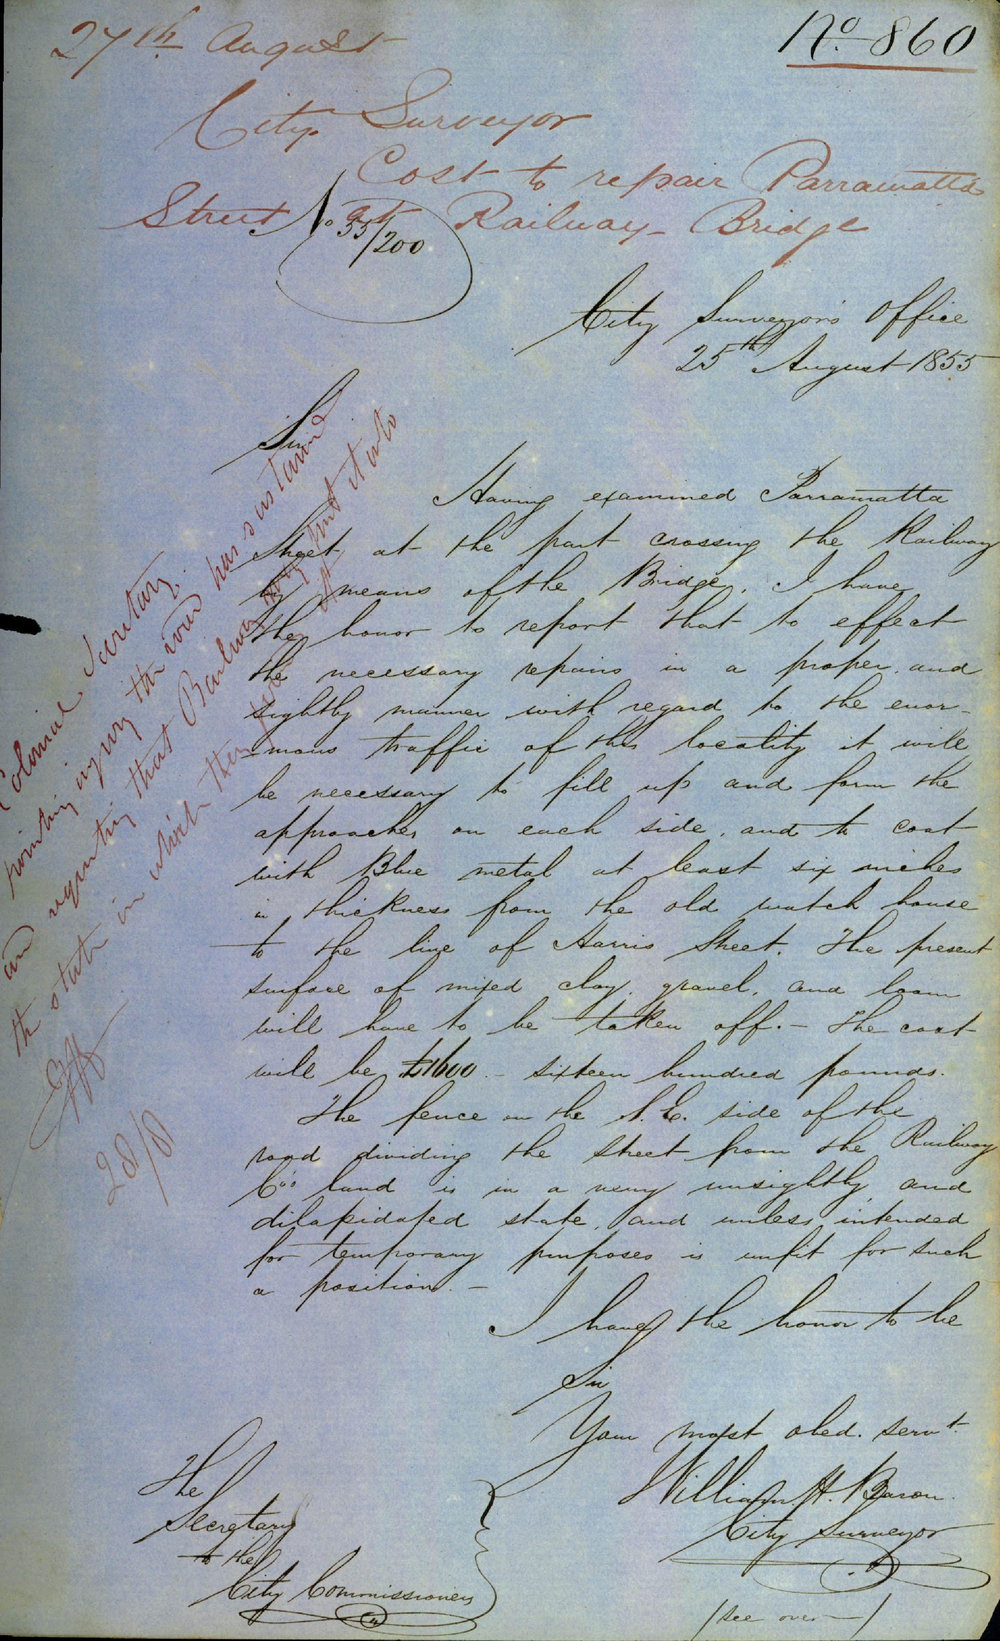 27th August
No. 860
City Surveyor
Cost to repair Parramatta
Street at Railway Bridge
No 55/200
City Surveyor's Office
25th August 1855
Sir
Having examined Parramatta
Street, at the part crossing the Railway
by means of the Bridge, I have
the honor to report that to effect
the necessary repairs in a proper and
sightly manner with regard to the enor-
mous traffic of this locality it will
be necessary to fill up and form the
approaches on each side, and to coat
with Blue metal at least six inches
in thickness from the old watch house
to the line of Harris Street. The present
surface of mixed clay, gravel, and loam
will have to be taken off. – The cost
will be £1600 – sixteen hundred pounds.
The fence on the S.E. side of the
road dividing the Street from the Railway
Co's land is in a very unsightly and
dilapidated state, and unless intended
for temporary purposes is unfit for such
a position. –
I have the honor to be
Sir
Your most obed. servt.
William H. Baron
City Surveyor
The
Secretary
to the
City Commissioners
(see over –)
Colonial Secretary
pointing injury the road has sustained
and requesting that Railway may put it into
the state in which they
28/8